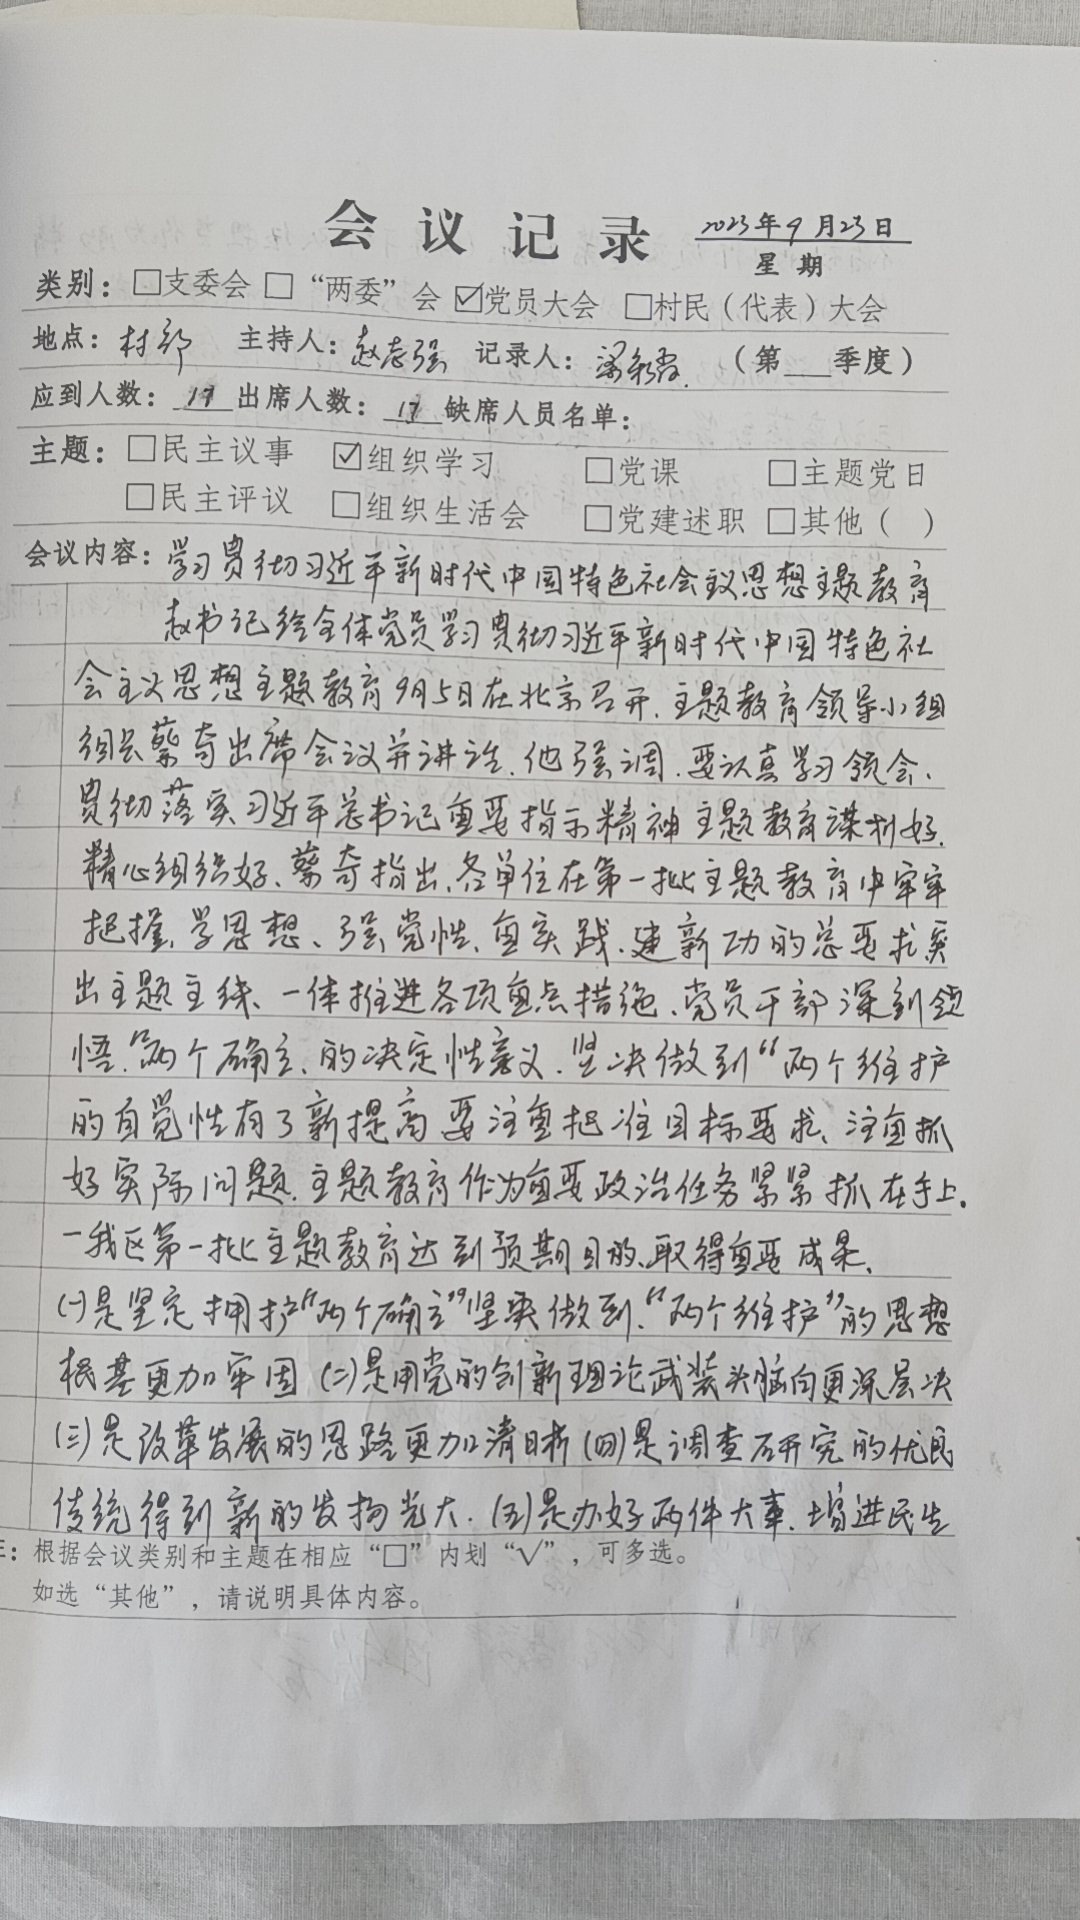 会议记录 2023年9月23日
星期
类别：□支委会 □“两委”会 ☑党员大会 □村民（代表）大会
地点：村部 主持人：赵志强 记录人：梁 （第___季度）
应到人数：17 出席人数：17 缺席人员名单：
主题：□民主议事 ☑组织学习 □党课 □主题党日
□民主评议 □组织生活会 □党建述职 □其他（ ）
会议内容：学习贯彻习近平新时代中国特色社会主义思想主题教育
赵书记给全体党员学习贯彻习近平新时代中国特色社
会主义思想主题教育9月5日在北京召开.主题教育领导小组
组长蔡奇出席会议并讲话.他强调.要认真学习领会、
贯彻落实习近平总书记重要指示精神主题教育谋划好.
精心组织好、蔡奇指出、各单位在第一批主题教育中牢牢
把握、学思想、强党性、重实践、建新功的总要求突
出主题主线、一体推进各项重点措施、党员干部深刻领
悟.“两个确立、的决定性意义.坚决做到“两个维护
的自觉性有了新提高要注重把准目标要求、注重抓
好实际问题.主题教育作为重要政治任务紧紧抓在手上.
一我区第一批主题教育达到预期目的、取得重要成果、
(一)是坚定拥护“两个确立”坚实做到.“两个维护”的思想
根基更加牢固(二)是用党的创新理论武装头脑向更深层次
(三)是改革发展的思路更加清晰(四)是调查研究的优良
传统得到新的发扬光大.(五)是办好两件大事.增进民生
注：根据会议类别和主题在相应“□”内划“√”，可多选。
如选“其他”，请说明具体内容。